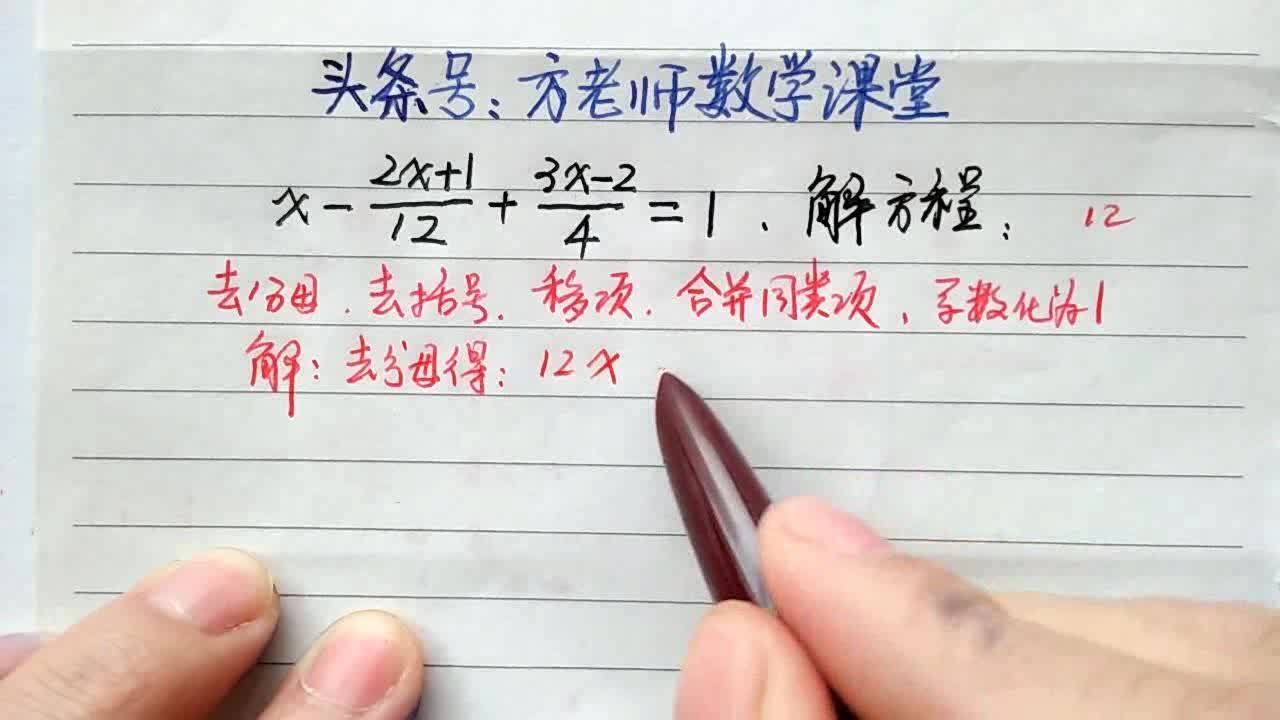 头条号：方老师数学课堂
x - \frac{2x+1}{12} + \frac{3x-2}{4} = 1 . 解方程： 12
去分母．去括号．移项．合并同类项，系数化为1
解：去分母得：12x